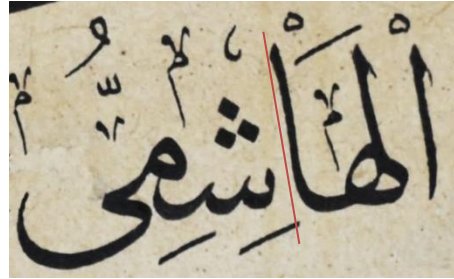 الْهَاشِمِىُّ